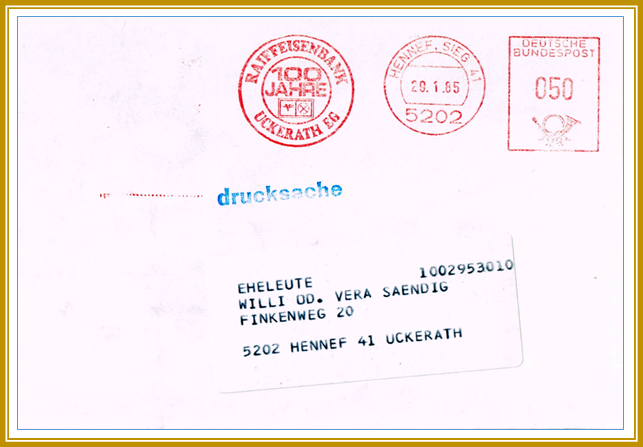 RAIFFEISENBANK
100
JAHRE
UCKERATH EG
HENNEF, SIEG 41
29.1.85
5202
DEUTSCHE
BUNDESPOST
050
drucksache
1002953010
EHELEUTE
WILLI OD. VERA SAENDIG
FINKENWEG 20
5202 HENNEF 41 UCKERATH